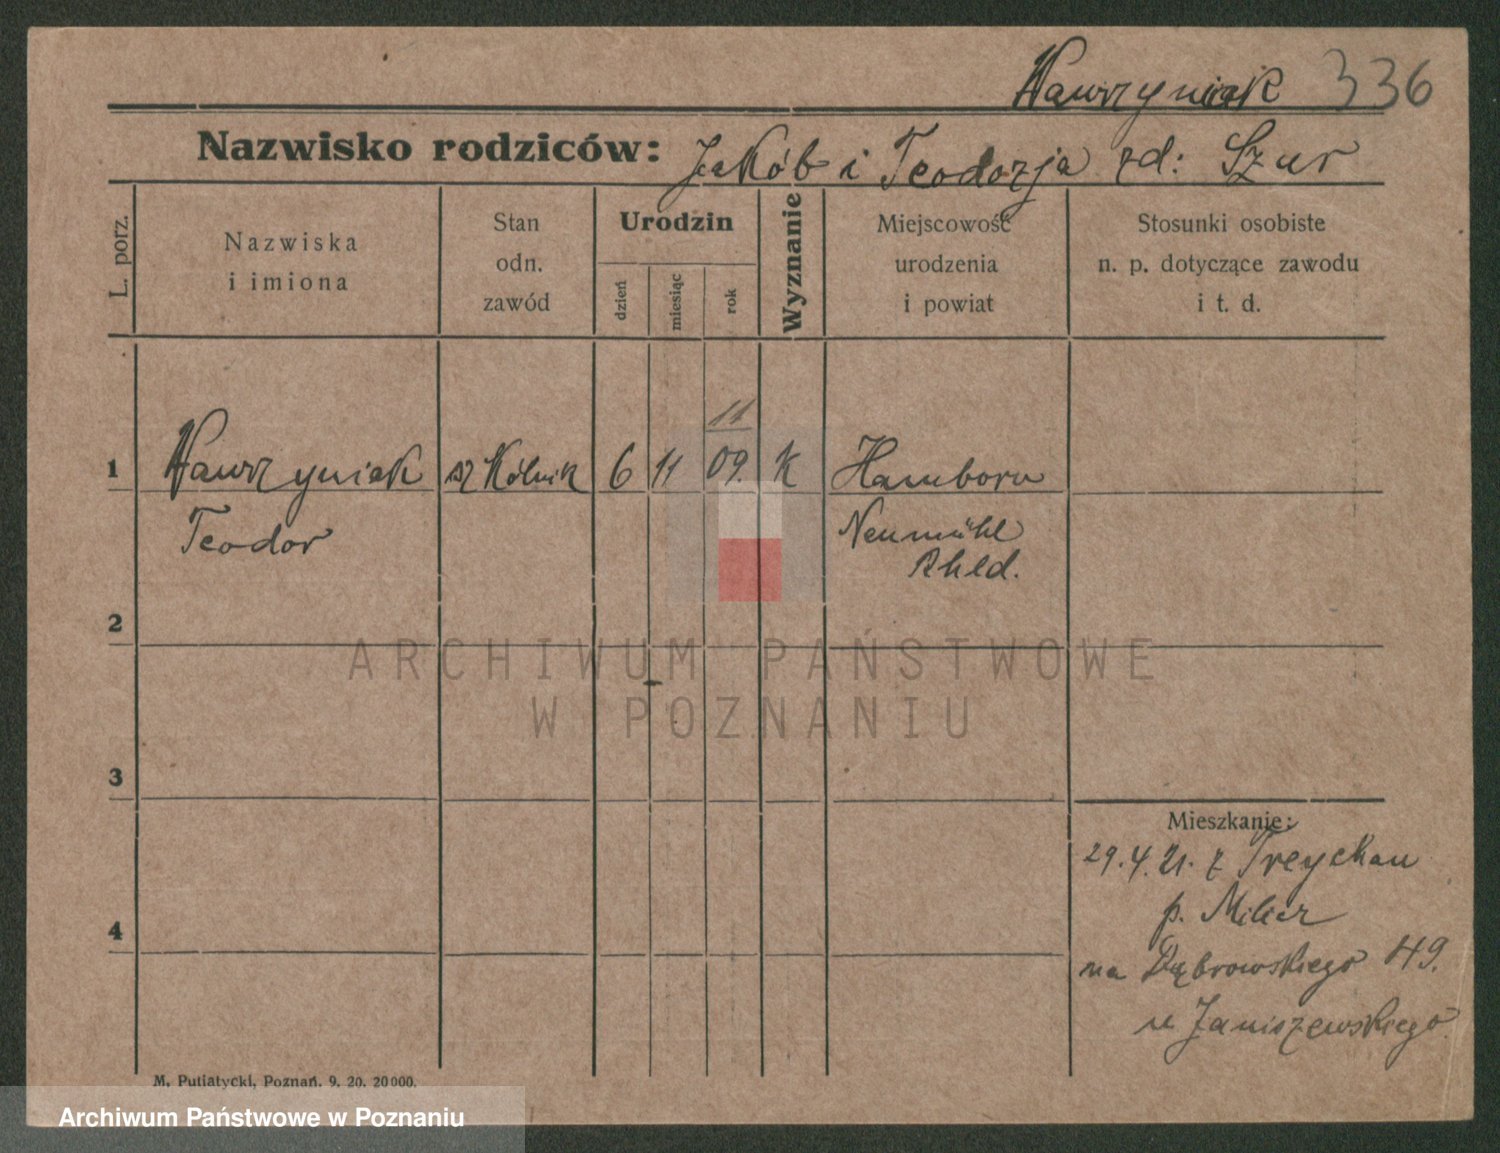 Wawrzyniak 336
Nazwisko rodziców: Jakób i Teodozja zd: Szur
L. porz.
Nazwiska
i imiona
Stan
odn.
zawód
Urodzin
dzień
miesiąc
rok
Wyznanie
Miejscowość
urodzenia
i powiat
Stosunki osobiste
n. p. dotyczące zawodu
i t. d.
11
1 Wawrzyniak szkólnik 6 11 09. K Hamborn
Teodor Neumühl
Rhld.
2
ARCHIWUM PAŃSTWOWE
W POZNANIU
3
Mieszkanie:
29.4.21. z Treychau
p.
4
na Dąbrowskiego 49.
u Janiszewskiego
M. Putiatycki, Poznań. 9. 20. 20000.
Archiwum Państwowe w Poznaniu